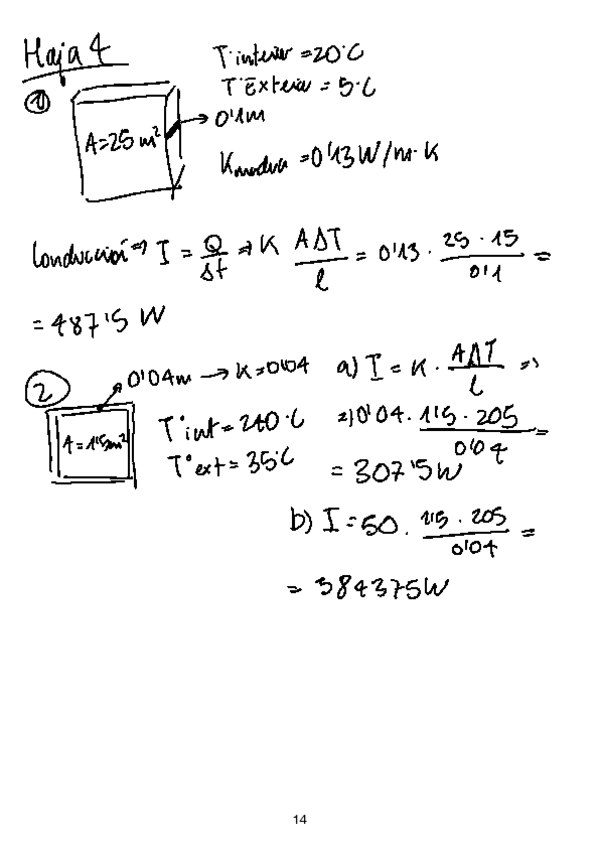 Hoja 4
T° interior = 20°C
T° Exterior = 5°C
1)
A = 25 m²
0'1m
K madera = 0'13 W/m·K
Conducción → I = Q/Δt → K AΔT/l = 0'13 · 25 · 15/0'1 =
= 487'5 W
2
0'04m → K = 0'04
A = 1'5m²
T° int = 240°C
T° ext = 35°C
a) I = K · AΔT/l =>
=> 0'04 · 1'5 · 205/0'04 =
= 307'5W
b) I = 50 · 1'5 · 205/0'04 =
= 384375W
14